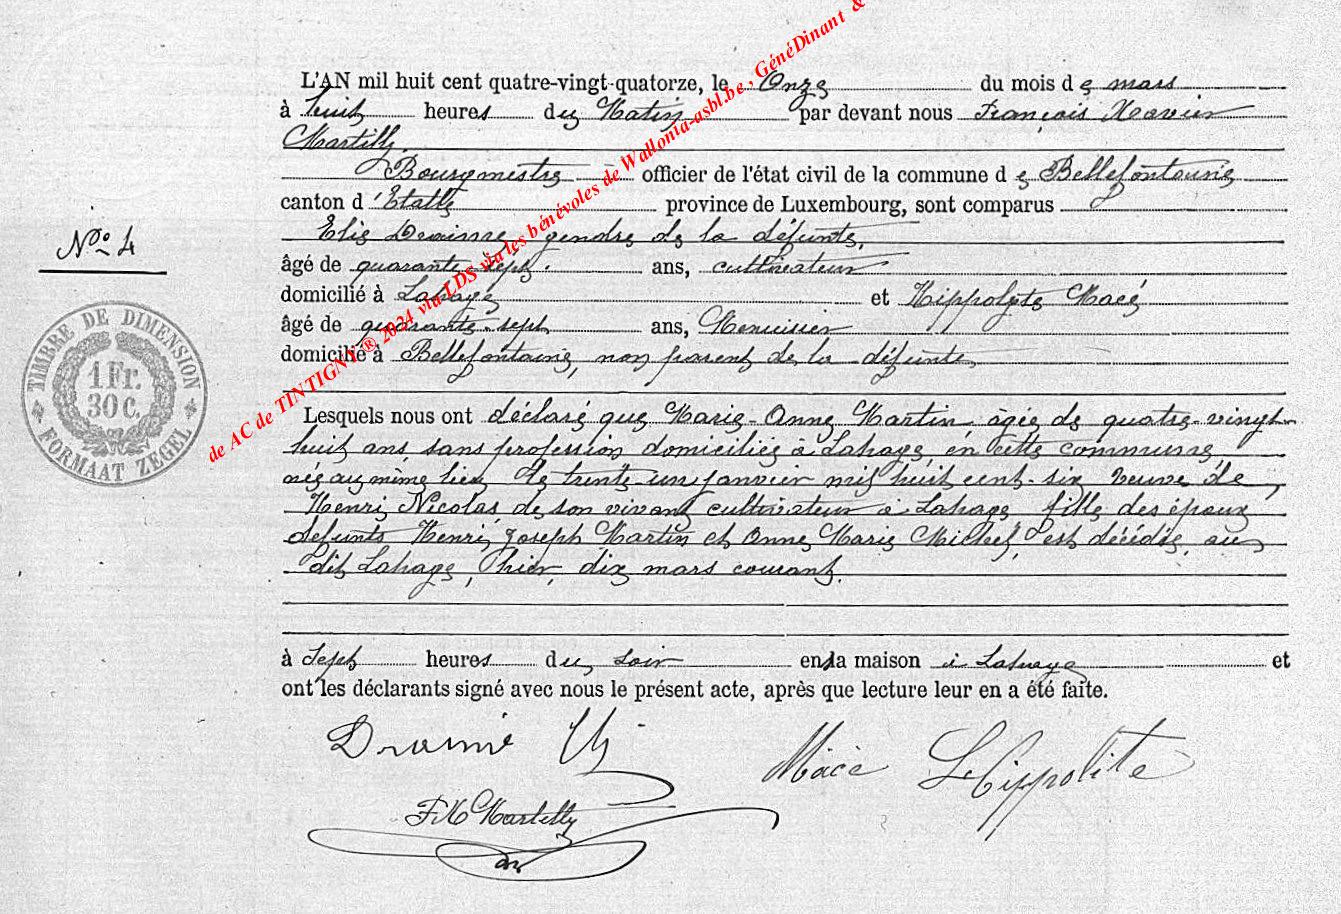 L'AN mil huit cent quatre-vingt-quatorze, le Onze du mois de mars
à huit heures du Matin par devant nous François Xavier
Martilly,
Bourgmestre officier de l'état civil de la commune de Bellefontaine
canton d'Etalle province de Luxembourg, sont comparus
Elie gendre de la défunte,
âgé de quarante-sept ans, cultivateur
domicilié à Lahage et Hippolyte Macé
âgé de quarante-sept ans, Menuisier
domicilié à Bellefontaine, non parent de la défunte
N° 4
TIMBRE DE DIMENSION
1 Fr.
30 C.
FORMAAT ZEGEL
Lesquels nous ont déclaré que Marie-Anne Martin âgée de quatre-vingt-
huit ans, sans profession domiciliée à Lahage, en cette commune,
née au même lieu le trente-un janvier mil huit cent-six veuve de
Henri Nicolas, de son vivant cultivateur à Lahage fille des époux
défunts Henri Joseph Martin et Anne Marie Michel, est décédée au
dit Lahage, hier, dix mars courant.
à Sept heures du soir en sa maison à Lahage et
ont les déclarants signé avec nous le présent acte, après que lecture leur en a été faite.
Macé Hippolite
F X Martilly
de AC de TINTIGNY ® 2024 via LDS via les bénévoles de Wallonia-asbl.be , GénéDinant &